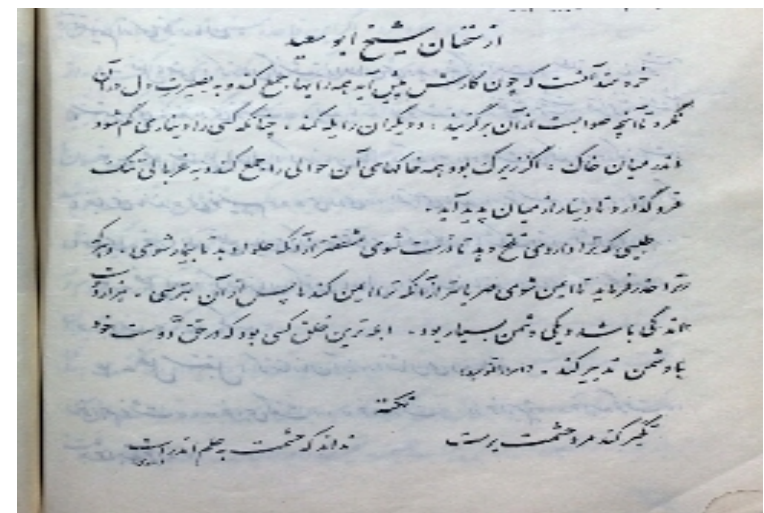 از سخنان شیخ ابو سعید
خردمند آنست که چون کارش پیش آید همه رایها جمع کند و به بصیرت دل در آن
نگرد تا آنچه صوابست از آن برگزیند، و دیگران را یله کند، چنانکه کسی را دیناری گم شود
اندر میان خاک، اگر زیرک بود همه خاکهای آن حوالی را جمع کند و به غربالی تنگ
فرو گذارد تا دینار از میان پدید آید.
طبیبی که ترا داروی تلخ دهد تا درست شوی مشفق‌تر از آنکه حلوا دهد تا بیمار شوی، و هر که
ترا حذر فرماید تا ایمن شوی مهربانتر از آنکه ترا ایمن کند تا پس از آن بترسی، هزار دوست
اندکی باشد و یکی دشمن بسیار بود. ابله ترین خلق کسی بود که در حق دوست خود
با دشمن تدبیر کند. (اسرارالتوحید)
نکته
تکبر کند مرد حشمت پرست نداند که حشمت به حلم اندرست